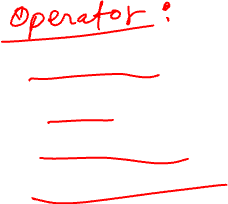 Operator :